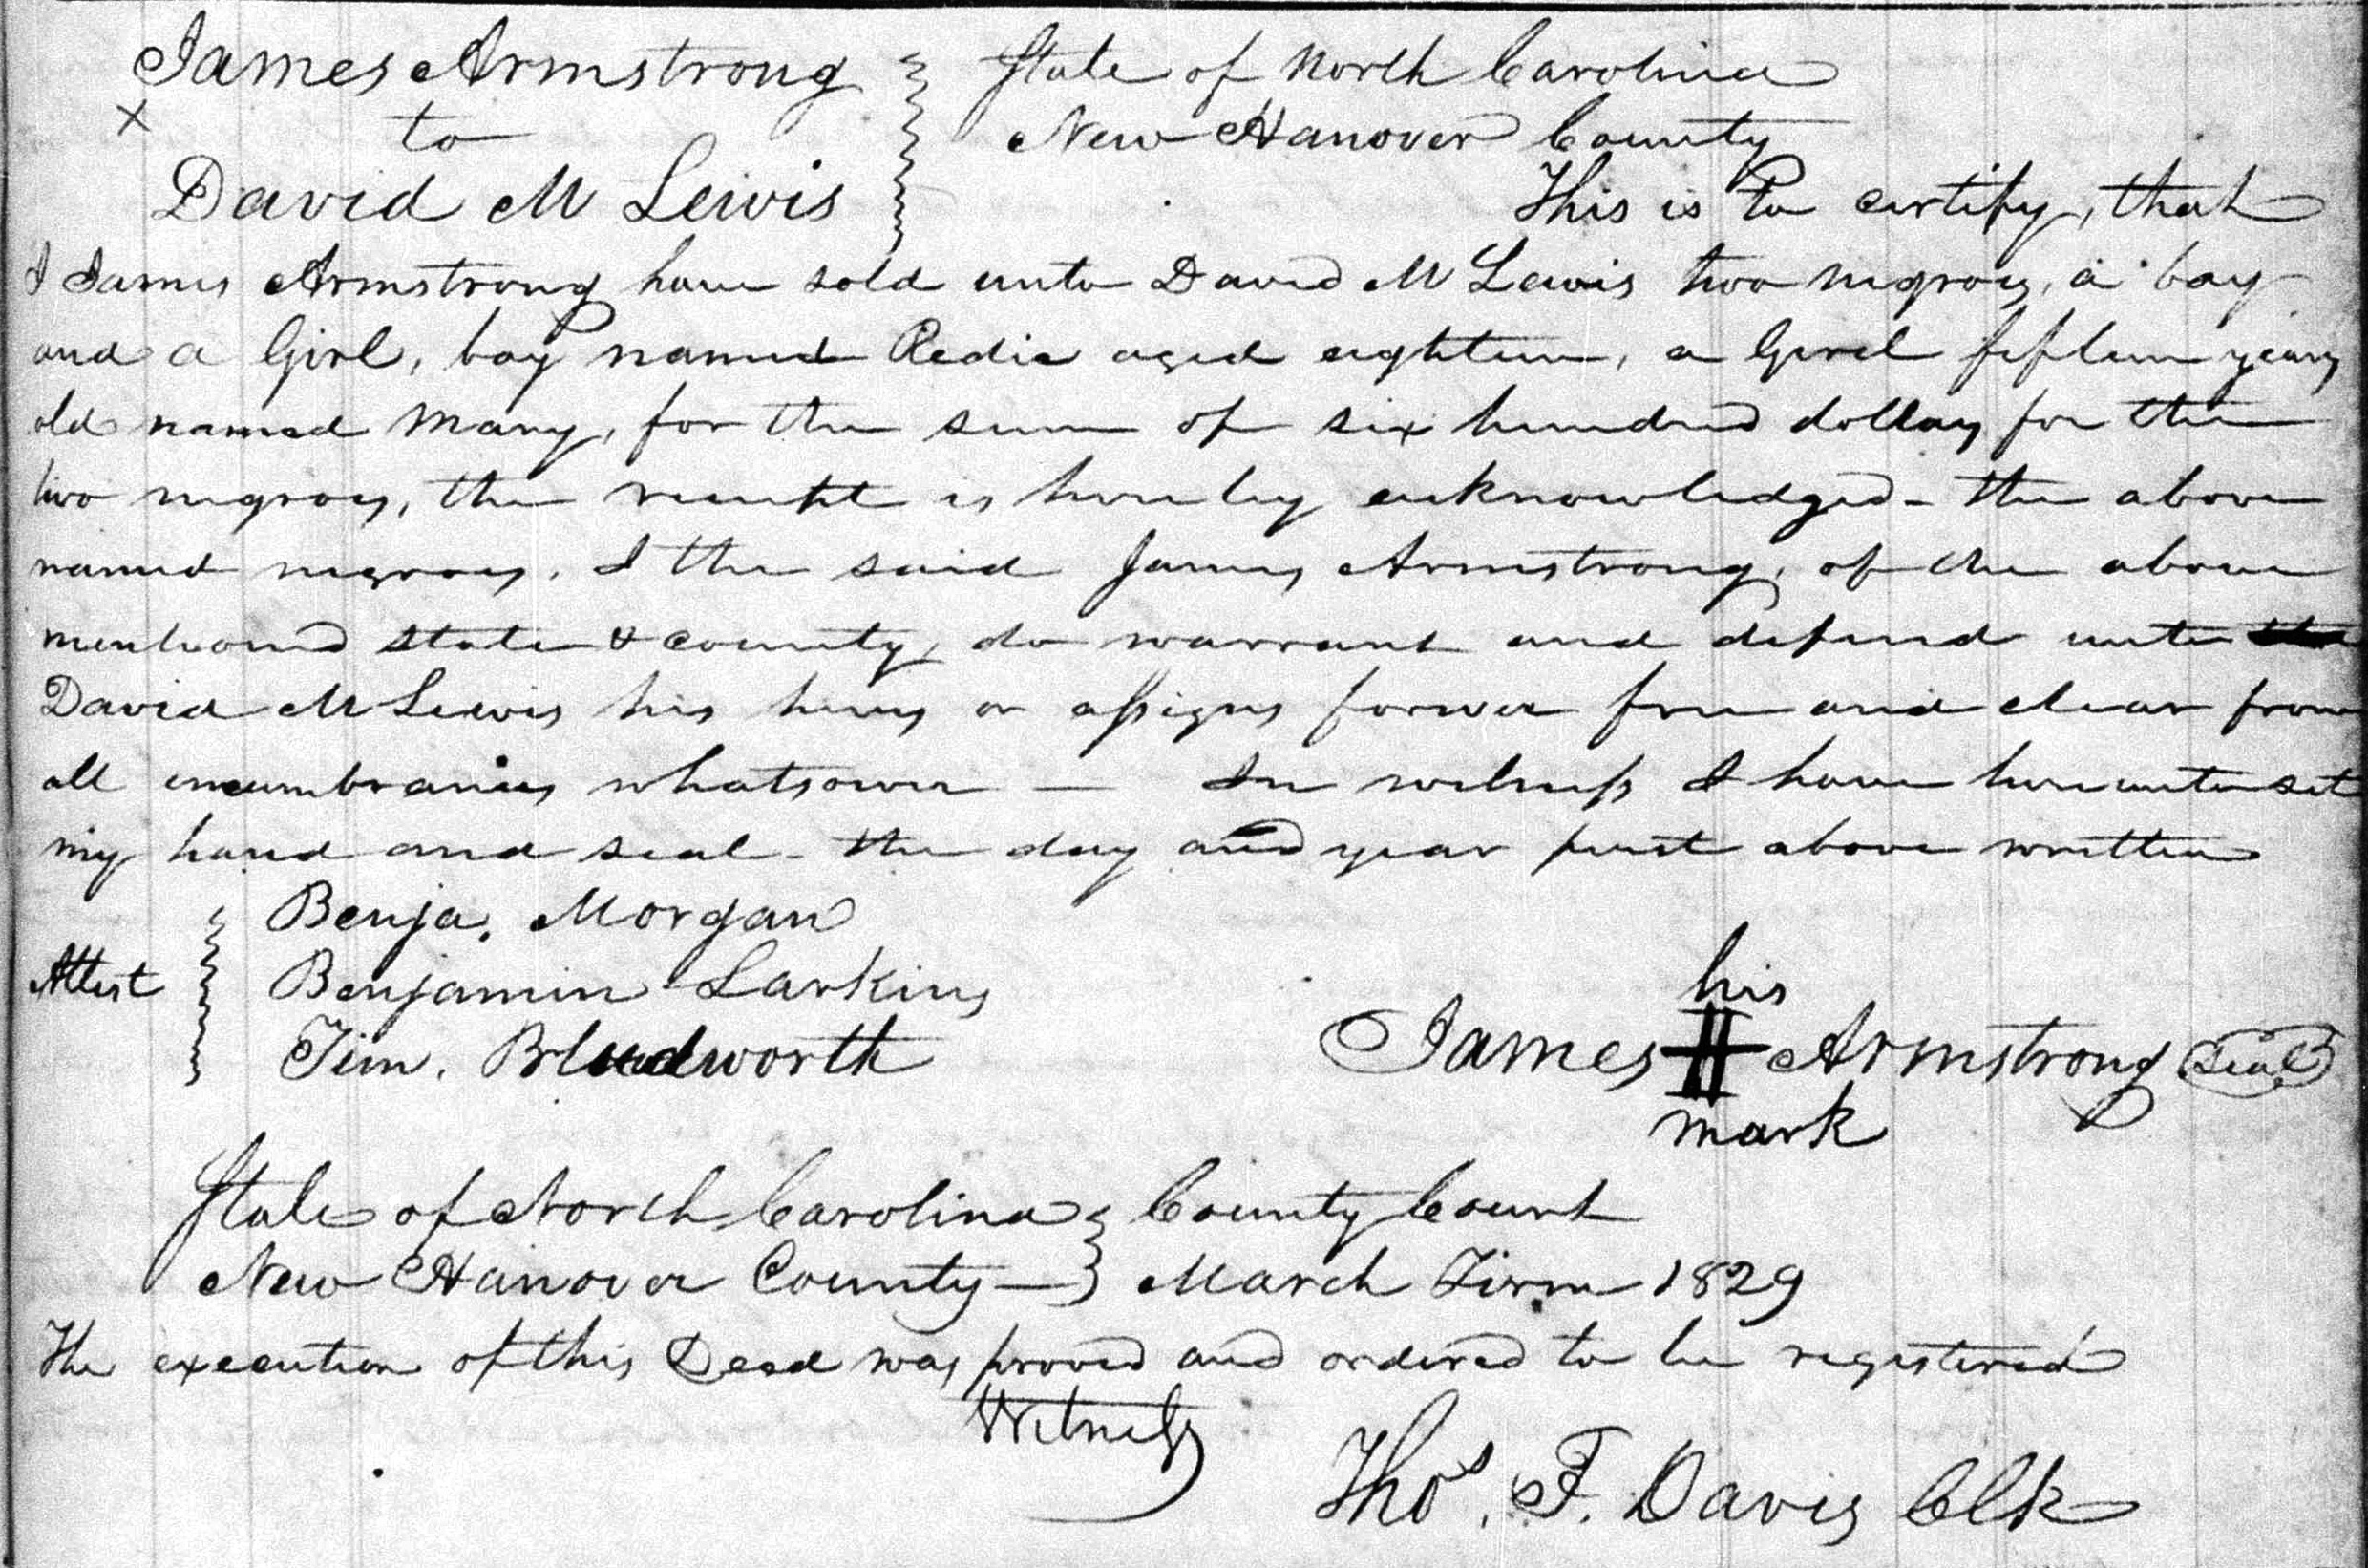 James Armstrong
x to
David M Lewis
State of North Carolina
New Hanover County
This is to certify, that
I James Armstrong have sold unto David M Lewis two negroes, a boy
and a Girl, boy named Redic aged eighteen, a Girel fifteen years
old named Mary, for the sum of six hundred dollars for the
two negroes, the receipt is hereby acknowledged - the above
named negroes, I the said James Armstrong, of the above
mentioned state & county, do warrant and defend unto
David M Lewis his heirs or assigns forever free and clear from
all incumbrances whatsoever — In witness I have hereunto set
my hand and seal - the day and year first above written
Benja. Morgan
Attest Benjamin Larkins
Tim. Bludworth
his
James Armstrong Seal
mark
State of North Carolina County Court
New Hanover County — March Term 1829
The execution of this Deed was proved and ordered to be registered
Witness
Thos. F. Davis Clk